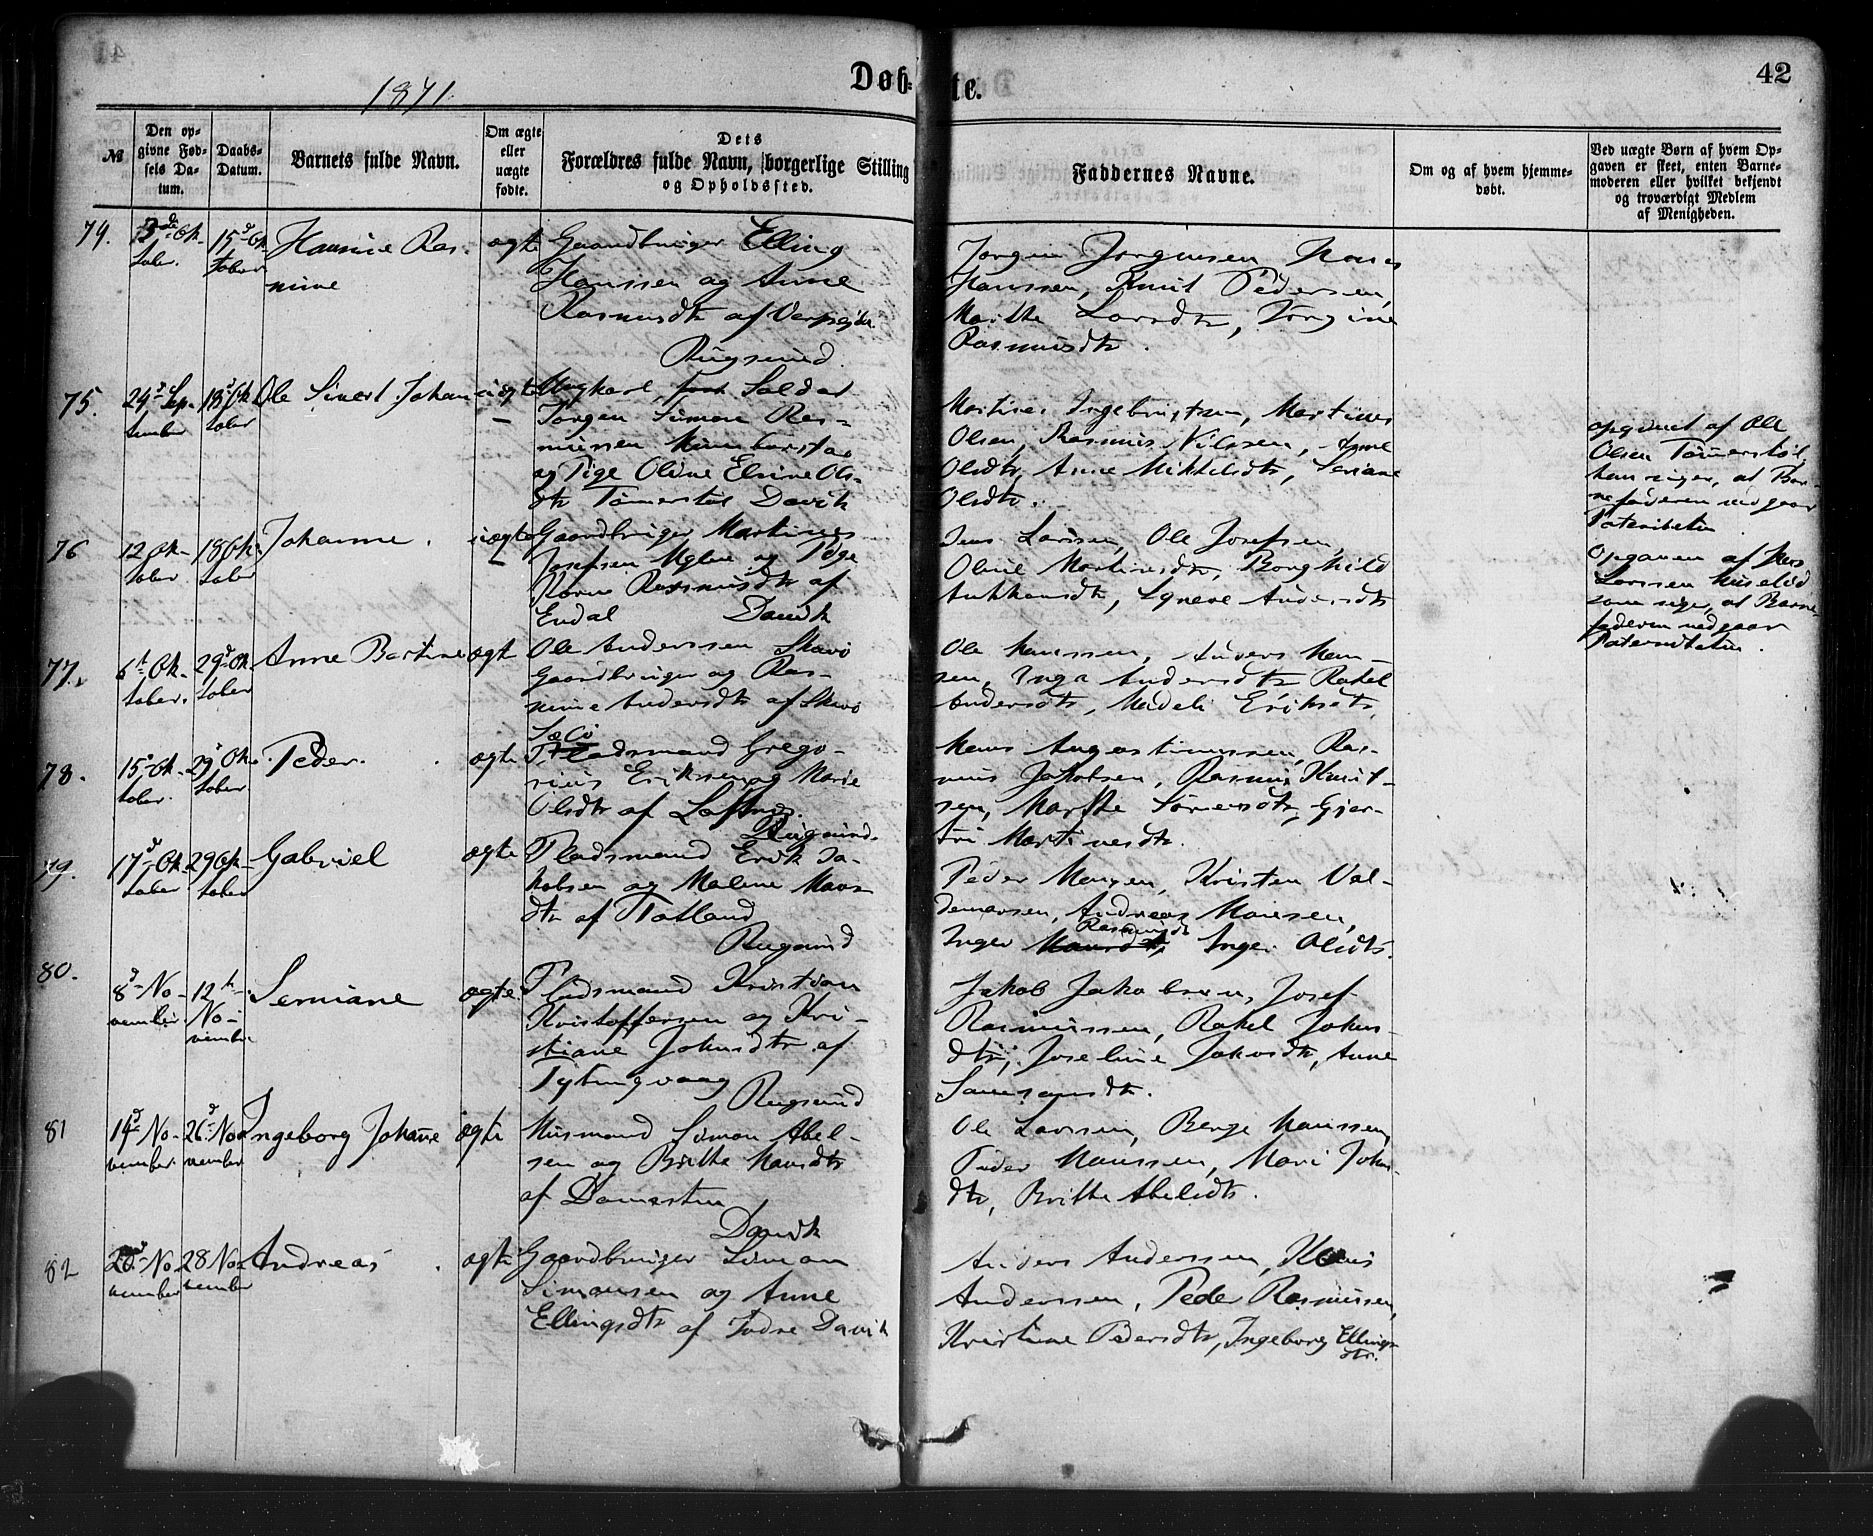 42
1871.
Døbte.
№
Den op-
givne Fød-
sels Da-
tum.
Daabs-
Datum.
Barnets fulde Navn.
Om ægte
eller
uægte
fødte.
Dets
Forældres fulde Navn, borgerlige Stilling
og Opholdssted.
Faddernes Navne.
Om og af hvem hjemme-
døbt.
Ved uægte Børn af hvem Op-
gaven er skeet, enten Barne-
moderen eller hvilket bekjendt
og troværdigt Medlem
af Menigheden.
74.
3de Ok-
tober.
15d Ok-
tober
Hansine Ras-
mine
ægte
Gaardbruger Elling
Hanssen og Anne
Rasmusdtr af
Rugsund.
Jørgen Jørgensen, Hans
Hanssen, Knut Pedersen,
Marthe Larsdtr, Jørgine
Rasmusdtr.
75.
24d Sep-
tember
18d Ok-
tober
Ole Sivert Johan
uægte
Ungkarl, Soldat
Jørgen Simon Ras-
mussen
og Pige Oline Elsine Ols-
dtr Tømmerstøl Davik
Martines Ingebrigtsen, Martines
Olsen, Rasmus Nilssen, Anne
Olsdtr, Anne Mikkelsdtr, Seriane
Olsdtr.
opgivet af Ole
Olsen Tømmerstøl,
han siger, at Bar-
nefaderen vedgaar
Paterniteten
76
12 Ok-
tober.
18 Ok-
tober
Johanne.
uægte
Gaardbruger Martines
Josefsen Myhre og Pige
Karen Rasmusdtr af
Endal Davik
Jens Larssen, Ole Josefsen,
Oline Martinesdtr, Borghild
Andersdtr
Opgaven af
Larssen
som siger, at Barne-
faderen vedgaar
Paterniteten.
77.
6t Ok-
tober.
29d Ok-
tober
Anne Bertine
ægte
Ole Anderssen Skavø
Gaardbruger og Ras-
mine Andersdtr af Skavø
Sølø
Ole Hanssen, Anders Han-
sen, Inga Andersdtr, Rakel
Andersdtr, Madeli Eriksdtr,
78.
15d Ok-
tober.
29d Ok-
tober
Peder.
ægte
Pladsmand Grego-
rius Eriksen og Marie
Olsdtr af Loftnes.
Rugsund.
Hans Augustinussen, Ras-
mus Jakobsen, Rasmus Knut-
sen, Marthe Sørensdtr, Gjer-
tri Martinesdtr.
79.
17d Ok-
tober
29 Ok-
tober
Gabriel
ægte
Pladsmand Erik Ja-
kobsen og Malene Mons-
dtr af Totland
Rugsund
Peder Monsen, Kristen Val-
demarsen, Andreas Monsen,
Rasmusdtr
Inger Hansdtr, Inger Olsdtr.
80.
8d No-
vember
12te
No-
vember
Semiane
ægte
Pladsmand Kristian
Kristoffersen og Kri-
stiane Johnsdtr af
Tytingvaag
Rugsund
Jakob Jakobsen, Josef
Rasmussen, Rakel Johns-
dtr, Joseline Johnsdtr, Anne
Samsonsdtr.
81
14d No-
vember.
26d No-
vember
Ingeborg Johanne
ægte
Husmand Simon Abel-
sen og Brithe Hansdtr
af Domesten
Davik
Ole Larssen, Berge Hanssen,
Peder Hanssen, Mari Johns-
dtr, Brithe Abelsdtr.
82
20d No-
vember
28 No-
vember
Andreas
ægte
Gaardbruger Simon
Simonsen og Anne
Ellingsdtr af Indre Davik
Anders Anderssen, Hans
Anderssen, Peder Rasmussen,
Kristine Pedersdtr, Ingeborg Ellings-
dtr.